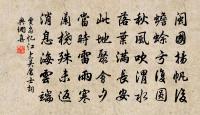 閩國揚帆後
蟾蜍虧復團
秋風吹渭水
落葉滿長安
此地聚會夕
當時雷雨寒
蘭橈殊未返
消息海雲端
賈島憶江上吳處士詞